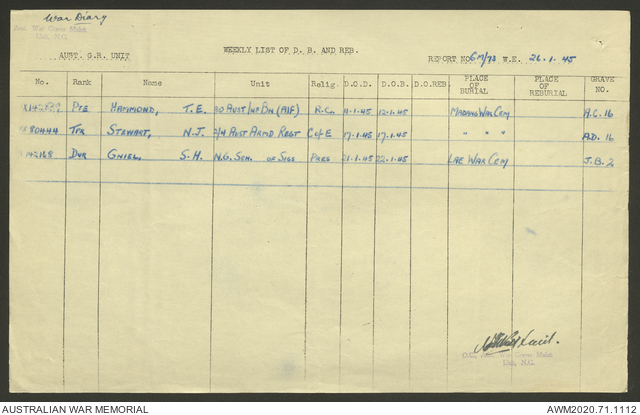 War Diary
Aust. War Graves Maint.
Unit, N.G.
AUST. G.R. UNIT
WEEKLY LIST OF D. B. AND REB.
REPORT NO. GM/73 W.E. 26.1.45
No. Rank Name Unit Relig. D.O.D. D.O.B. D.O.REB. PLACE OF BURIAL PLACE OF REBURIAL GRAVE NO.
PTE HAMMOND, T.E. 30 AUST INF BN (AIF) R.C. 11.1.45 12.1.45 MADANG WAR CEM A.C. 16
TPR STEWART, N.J. 2/4 AUST ARMD REGT C of E 17.1.45 17.1.45 " " " A.D. 16
DVR GNIEL, S.H. N.G. SCH. OF SIGS PRES 21.1.45 22.1.45 LAE WAR CEM J.B. 2
Lieut.
O.C., Aust. War Graves Maint.
Unit, N.G.
AUSTRALIAN WAR MEMORIAL
AWM2020.71.1112